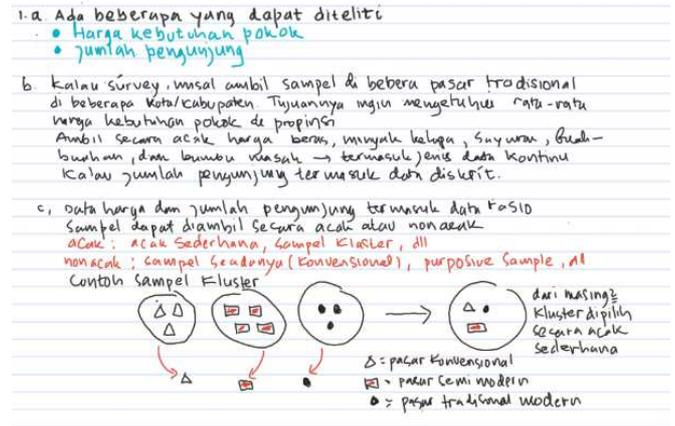 1. a. Ada beberapa yang dapat diteliti
• Harga kebutuhan pokok
• Jumlah pengunjung
b. Kalau survey, misal ambil sampel di bebera pasar tradisional
di beberapa Kota/Kabupaten. Tujuannya ingin mengetahui rata-rata
harga kebutuhan pokok di propinsi
Ambil secara acak harga beras, minyak kelapa, sayuran, buah-
buahan, dan bumbu masak → termasuk jenis data kontinu
Kalau jumlah pengunjung termasuk data diskrit.
c, Data harga dan jumlah pengunjung termasuk data rasio
Sampel dapat diambil secara acak atau nonacak
acak : acak sederhana, sampel klaster, dll
nonacak : sampel seadanya (konvensional), purposive sample, dll
Contoh sampel kluster
dari masing2
kluster dipilih
secara acak
sederhana
Δ = pasar konvensional
= pasar semi modern
• = pasar tradisional modern